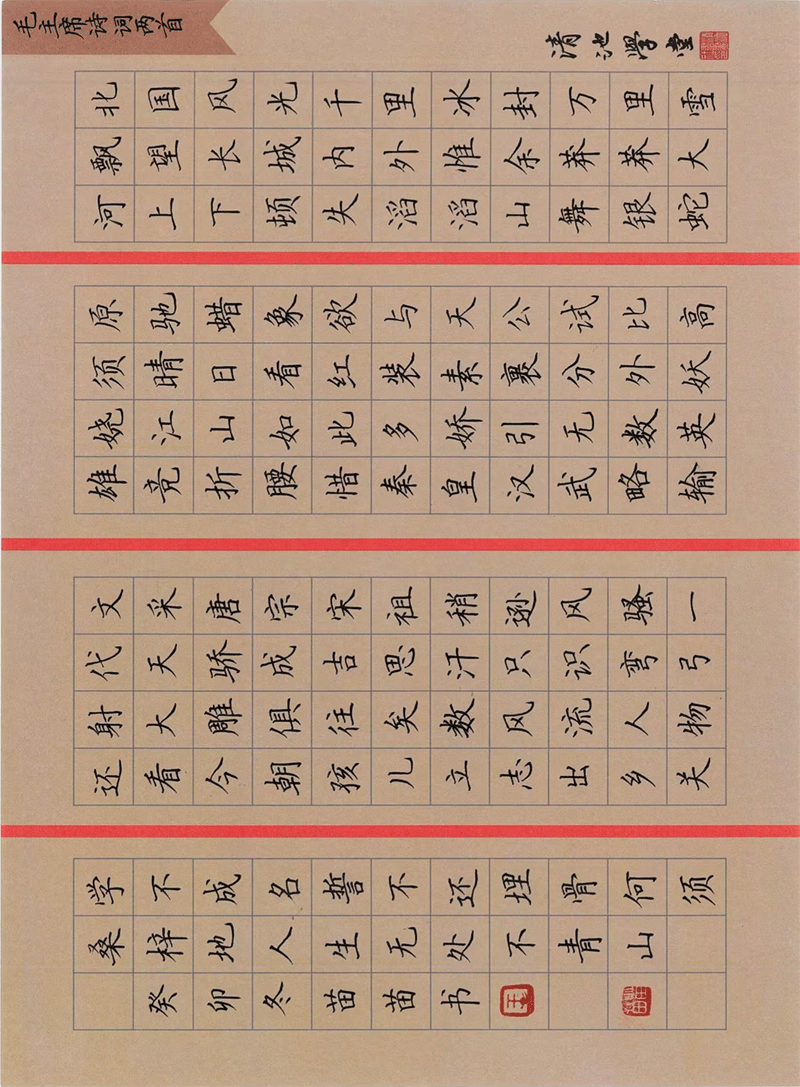 毛主席诗词两首
清池学堂
北国风光千里冰封万里雪
飘望长城内外惟余莽莽大
河上下顿失滔滔山舞银蛇
原驰蜡象欲与天公试比高
须晴日看红装素裹分外妖
娆江山如此多娇引无数英
雄竞折腰惜秦皇汉武略输
文采唐宗宋祖稍逊风骚一
代天骄成吉思汗只识弯弓
射大雕俱往矣数风流人物
还看今朝孩儿立志出乡关
学不成名誓不还埋骨何须
桑梓地人生无处不青山
癸卯冬苗苗书